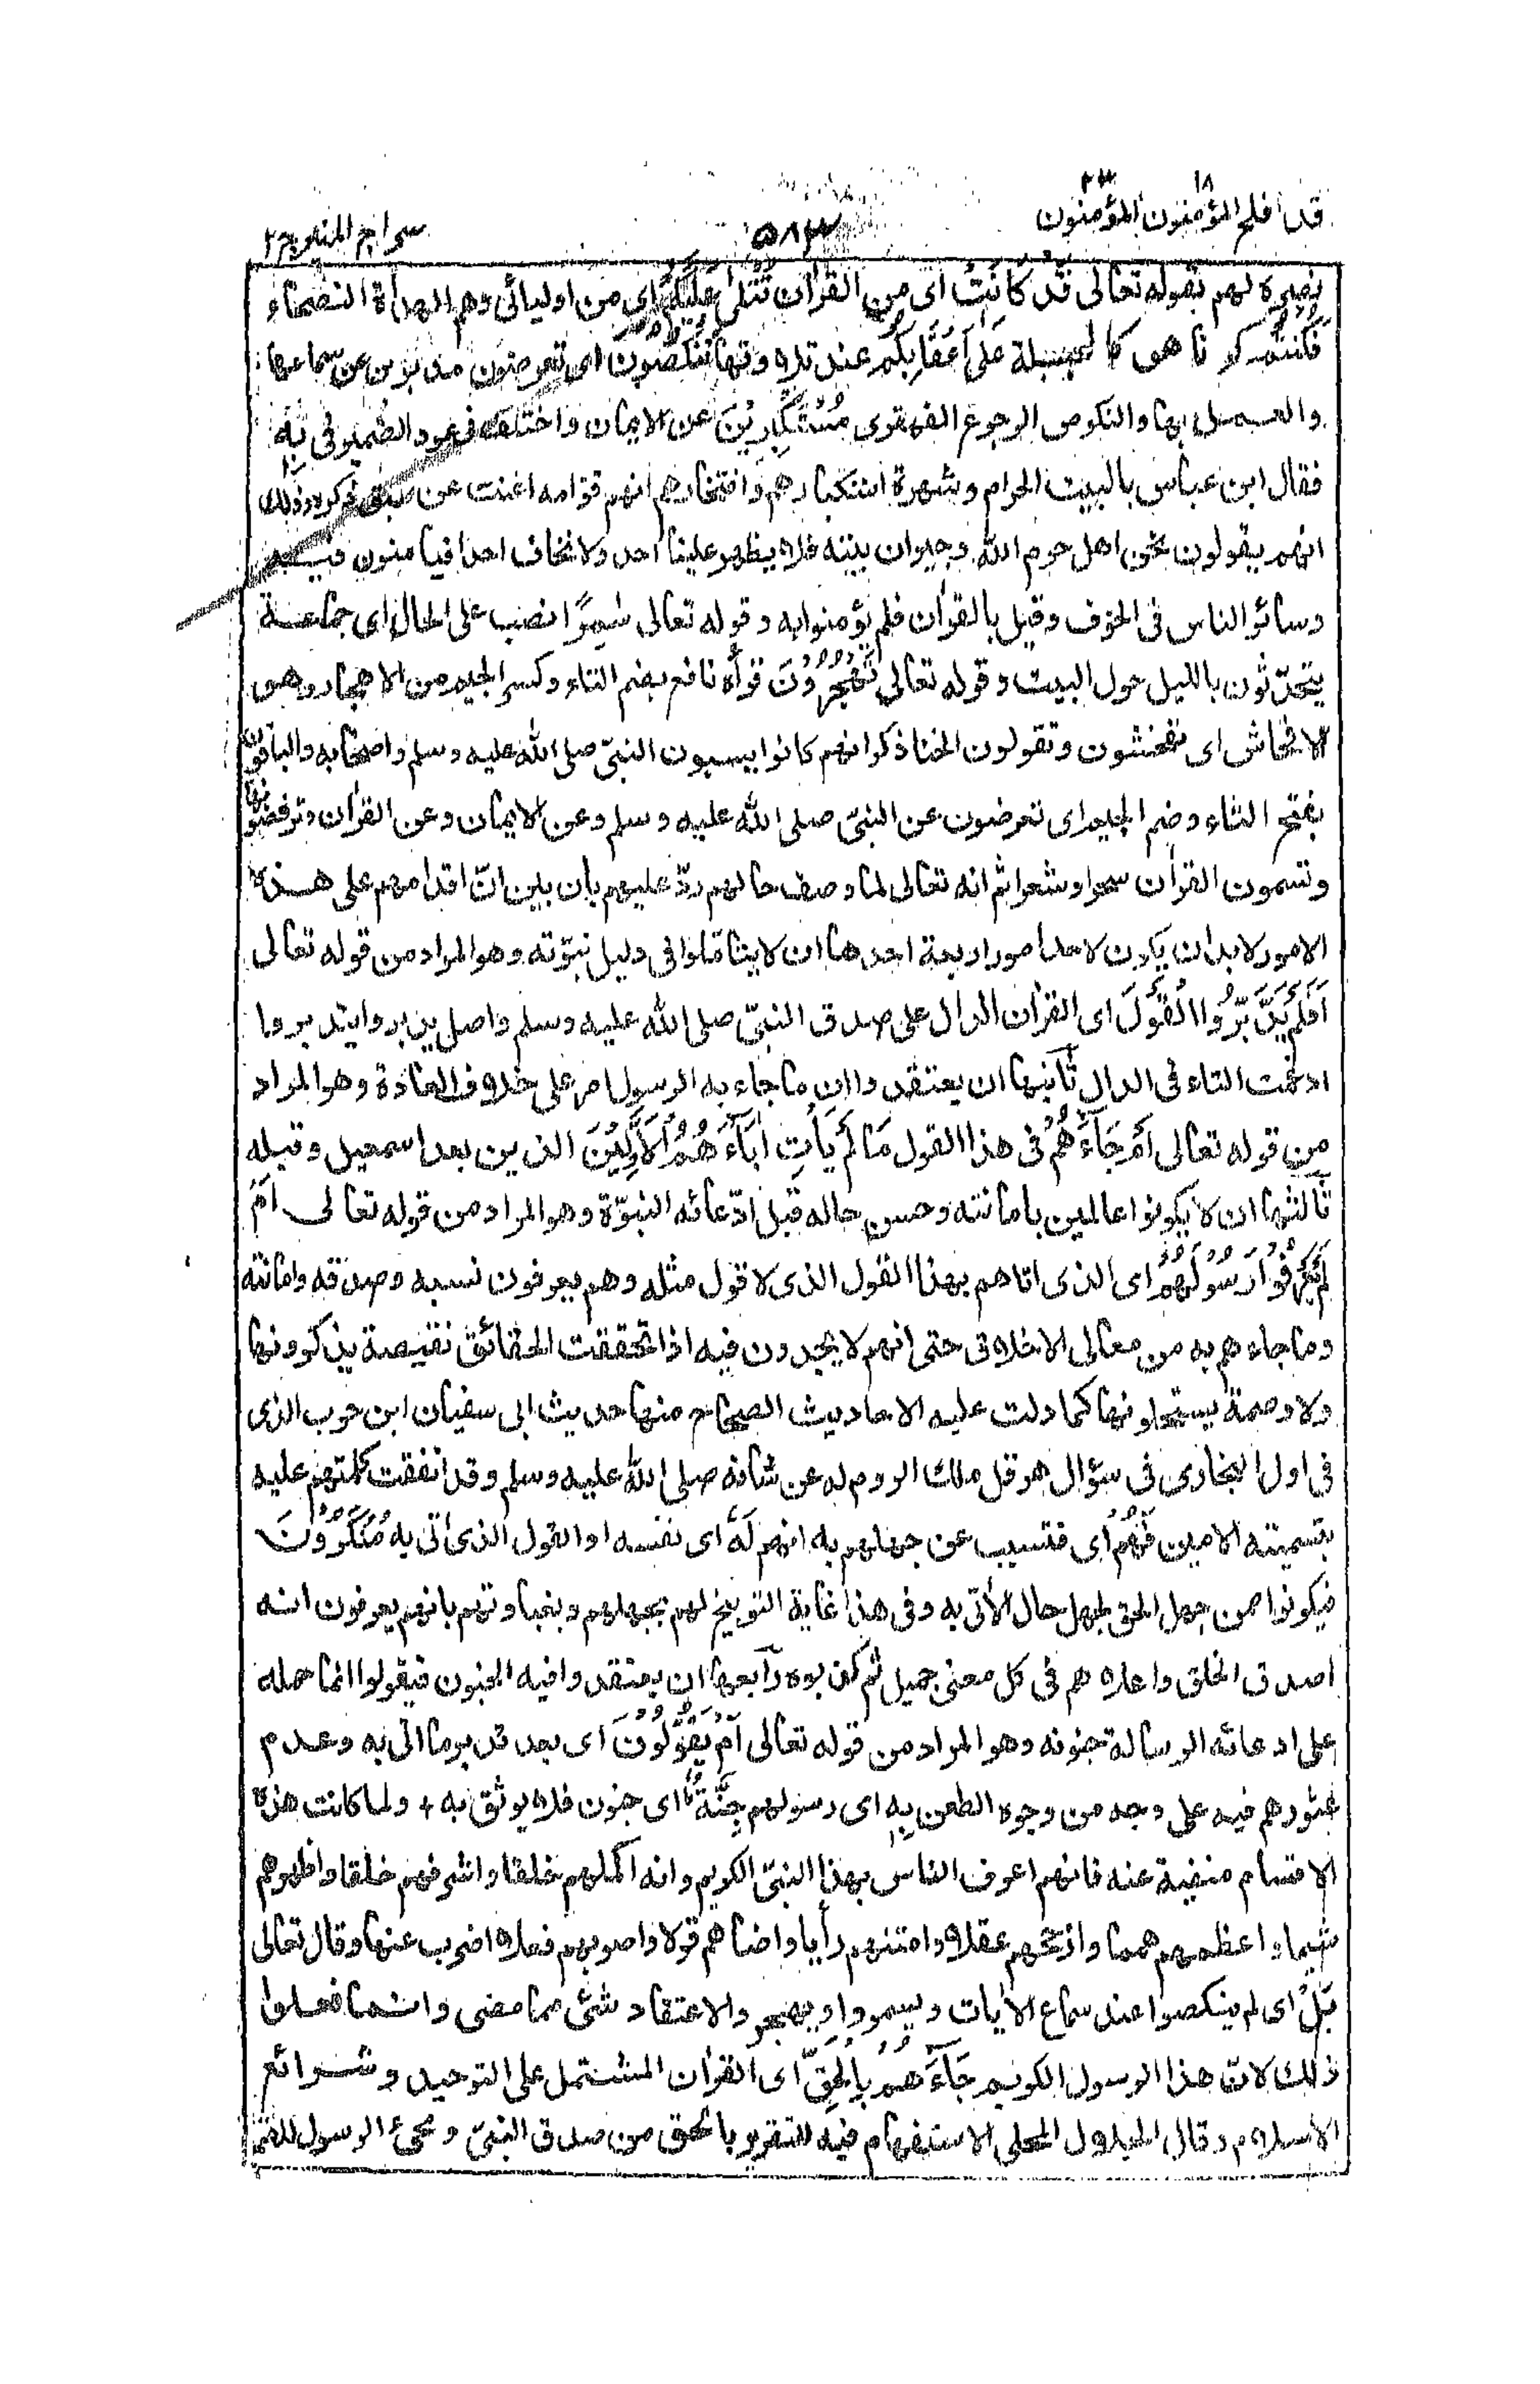 قد افلح المؤمنون ١٨ المؤمنون ٢٣
٥٨٣
سراج المنير ج ٢
نصره لهم بقوله تعالى قَدْ كَانَتْ اى من القرأن تُتْلٰى عَلَيْكُمْ اى من اوليائى وهم الهداة النصحاء
فَكُنْتُمْ كونا هو كالجبلة عَلٰى اَعْقَابِكُمْ عند تلاوتها تَنْكِصُوْنَ اى تعرضون مدبرين عن سماعها
والعمل بها والنكوص الرجوع القهقرى مُسْتَكْبِرِيْنَ عن الايمان واختلف فى عود الضمير فى بِهٖ
فقال ابن عباس بالبيت الحرام وشهرة استكبارهم وافتخارهم انهم قوامه اغنت عن سبق ذكره وذلك
انهم يقولون نحن اهل حرم الله وجيران بيته فلا يظهر علينا احد ولا نخاف احدا فيامنون فيه
وسائر الناس فى الخوف وقيل بالقرأن فلم يؤمنوا به وقوله تعالى سٰمِرًا نصب على الحال اى جماعة
يتحدّثون بالليل حول البيت وقوله تعالى تَهْجُرُوْنَ قرأه نافع بضم التاء وكسر الجيم من الاهجار وهو
الافحاش اى تفحشون وتقولون الخنا ذكر انهم كانوا يسبون النبىّ صلى الله عليه وسلم واصحابه والباقون
بفتح التاء وضم الجيم اى تعرضون عن النبىّ صلى الله عليه وسلم وعن الايمان وعن القرأن وترفضونها
وتسمون القرأن سحرا وشعرا ثم انه تعالى لما وصف حالهم ردّ عليهم بأن بين انّ اقدامهم على هذه
الامور لابد ان يكون لاحد امور اربعة احدها ان لا يتاملوا فى دليل نبوّته وهو المراد من قوله تعالى
اَفَلَمْ يَدَّبَّرُوا الْقَوْلَ اى القرأن الدال على صدق النبىّ صلى الله عليه وسلم واصل يدبروا يتدبروا
ادغمت التاء فى الدال ثانيها ان يعتقدوا ان ما جاء به الرسول امر على خلاف العادة وهو المراد
من قوله تعالى اَمْ جَآءَهُمْ فى هذا القول مَا لَمْ يَأْتِ اٰبَآءَهُمُ الْاَوَّلِيْنَ الذين بعد اسمعيل وقبله
ثالثها ان لا يكونوا عالمين بامانته وحسن حاله قبل ادّعائه النبوّة وهو المراد من قوله تعالى اَمْ
لَمْ يَعْرِفُوْا رَسُوْلَهُمْ اى الذى اتاهم بهذا القول الذى لا قول مثله وهم يعرفون نسبه وصدقه وامانته
وما جاءهم به من معالى الاخلاق حتى انهم لا يجدون فيه اذا تحققت الحقائق نقيصة يذكرونها
ولا وصمة يستحلونها كما دلت عليه الاحاديث الصحاح منها حديث ابى سفيان ابن حرب الذى
فى اول البخارى فى سؤال هرقل ملك الروم له عن شانه صلى الله عليه وسلم وقد اتفقت كلمتهم عليه
بتسميته الامين فَهُمْ اى فتسبب عن جهلهم به انهم لَهٗ اى نفسه او القول الذى اتى به مُنْكِرُوْنَ
فيكونوا ممن جهل الحق لجهل حال الأتى به وفى هذا غاية التوبيخ لهم بجهلهم وبغباوتهم بانهم يعرفون انه
اصدق الخلق واعلاهم فى كل معنى جميل ثم كذبوه رابعها ان يعتقدوا فيه الجنون فيقولوا انما حمله
على ادعائه الرسالة جنونه وهو المراد من قوله تعالى اَمْ يَقُوْلُوْنَ اى بعد تدبر ما اتى به وعدم
عثورهم فيه على وجه من وجوه الطعن بِهٖ اى رسولهم جِنَّةٌ اى جنون فلا يوثق به + ولما كانت هذه
الاقسام منفية عنه فانهم اعرف الناس بهذا النبىّ الكريم وانه اكملهم خلقا واشرفهم خلقا واظهرهم
شيما واعظمهم همما وارجحهم عقلا وامتنهم رأيا وارضاهم قولا واصوبهم فعلا اضرب عنها وقال تعالى
بَلْ اى لم ينكصوا عند سماع الأيات ويسمروا ويهجروا لاعتقاد شئ مما مضى وانما فعلوا
ذلك لانّ هذا الرسول الكريم جَآءَهُمْ بِالْحَقِّ اى القرأن المشتمل على التوحيد وشرائع
الاسلام وقال الجلال المحلى الاستفهام فيه للتقرير بالحق من صدق النبىّ ومجئ الرسول للامم